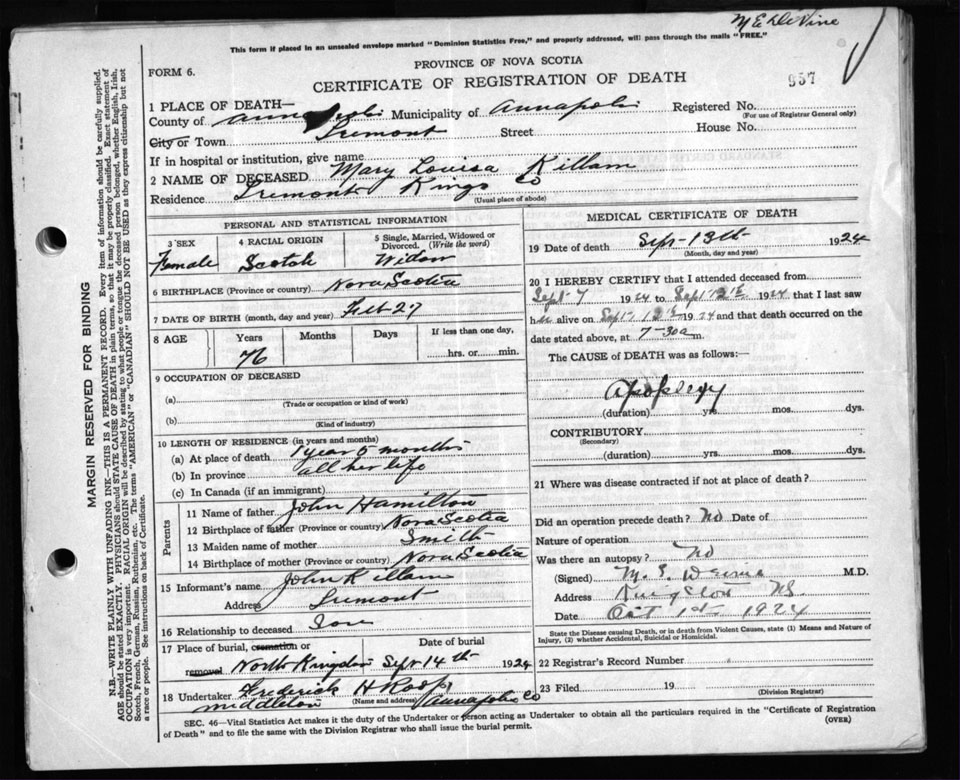 M E DeVine
This form if placed in an unsealed envelope marked "Dominion Statistics Free," and properly addressed, will pass through the mails "FREE."
PROVINCE OF NOVA SCOTIA
FORM 6.
CERTIFICATE OF REGISTRATION OF DEATH
957
1 PLACE OF DEATH—
County of Annapolis Municipality of Annapolis Registered No.
(For use of Registrar General only)
City or Town Tremont Street House No.
If in hospital or institution, give name
2 NAME OF DECEASED Mary Louisa Killam
Residence Tremont Kings Co
(Usual place of abode)
PERSONAL AND STATISTICAL INFORMATION
3 SEX 4 RACIAL ORIGIN 5 Single, Married, Widowed or Divorced. (Write the word)
Female Scotch Widow
6 BIRTHPLACE (Province or country) Nova Scotia
7 DATE OF BIRTH (month, day and year) Feb 27
8 AGE Years Months Days If less than one day,
76 hrs. or min.
9 OCCUPATION OF DECEASED
(a)
(Trade or occupation or kind of work)
(b)
(Kind of industry)
10 LENGTH OF RESIDENCE (in years and months)
(a) At place of death 1 year 5 months
(b) In province all her life
(c) In Canada (if an immigrant)
Parents
11 Name of father John Hamilton
12 Birthplace of father (Province or country) Nova Scotia
13 Maiden name of mother Smith
14 Birthplace of mother (Province or country) Nova Scotia
15 Informant's name John Killam
Address Tremont
16 Relationship to deceased Son
17 Place of burial, cremation or removal Date of burial
North Kingston Sept 14th 1924
18 Undertaker Frederick H Roop
(Name and address)
Middleton Annapolis Co
MEDICAL CERTIFICATE OF DEATH
19 Date of death Sep 13th 1924
(Month, day and year)
20 I HEREBY CERTIFY that I attended deceased from
Sept 7 1924 to Sept 13th 1924 that I last saw
her alive on Sept 13th 1924 and that death occurred on the
date stated above, at 7-30a m.
The CAUSE of DEATH was as follows:—
Apoplexy
(duration) yrs. mos. dys.
CONTRIBUTORY
(Secondary)
(duration) yrs. mos. dys.
21 Where was disease contracted if not at place of death?
Did an operation precede death? No Date of
Nature of operation
Was there an autopsy? No
(Signed) M. E. DeVine M.D.
Address Kingston NS.
Oct 1st 1924
State the Disease causing Death, or in death from Violent Causes, state (1) Means and Nature of
Injury, (2) whether Accidental, Suicidal or Homicidal.
22 Registrar's Record Number
23 Filed 19
(Division Registrar)
SEC. 46—Vital Statistics Act makes it the duty of the Undertaker or person acting as Undertaker to obtain all the particulars required in the "Certificate of Registration
of Death" and to file the same with the Division Registrar who shall issue the burial permit.
(OVER)
MARGIN RESERVED FOR BINDING
N.B.—WRITE PLAINLY WITH UNFADING INK—THIS IS A PERMANENT RECORD. Every item of information should be carefully supplied.
AGE should be stated EXACTLY. PHYSICIANS should STATE CAUSE OF DEATH in plain terms, so that it may be properly classified. Exact statement of
OCCUPATION is very important. RACIAL ORIGIN will be described by stating to what people or tongue the deceased person belonged, whether English, Irish,
Scotch, French, German, Russian, Ruthenian, etc. The terms "AMERICAN" or "CANADIAN" SHOULD NOT BE USED as they express citizenship but not
a race or people. See instructions on back of Certificate.